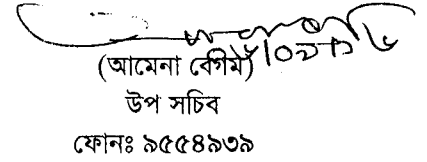 (আমেনা বেগম)
উপ সচিব
ফোনঃ ৯৫৫৪৯৩৯